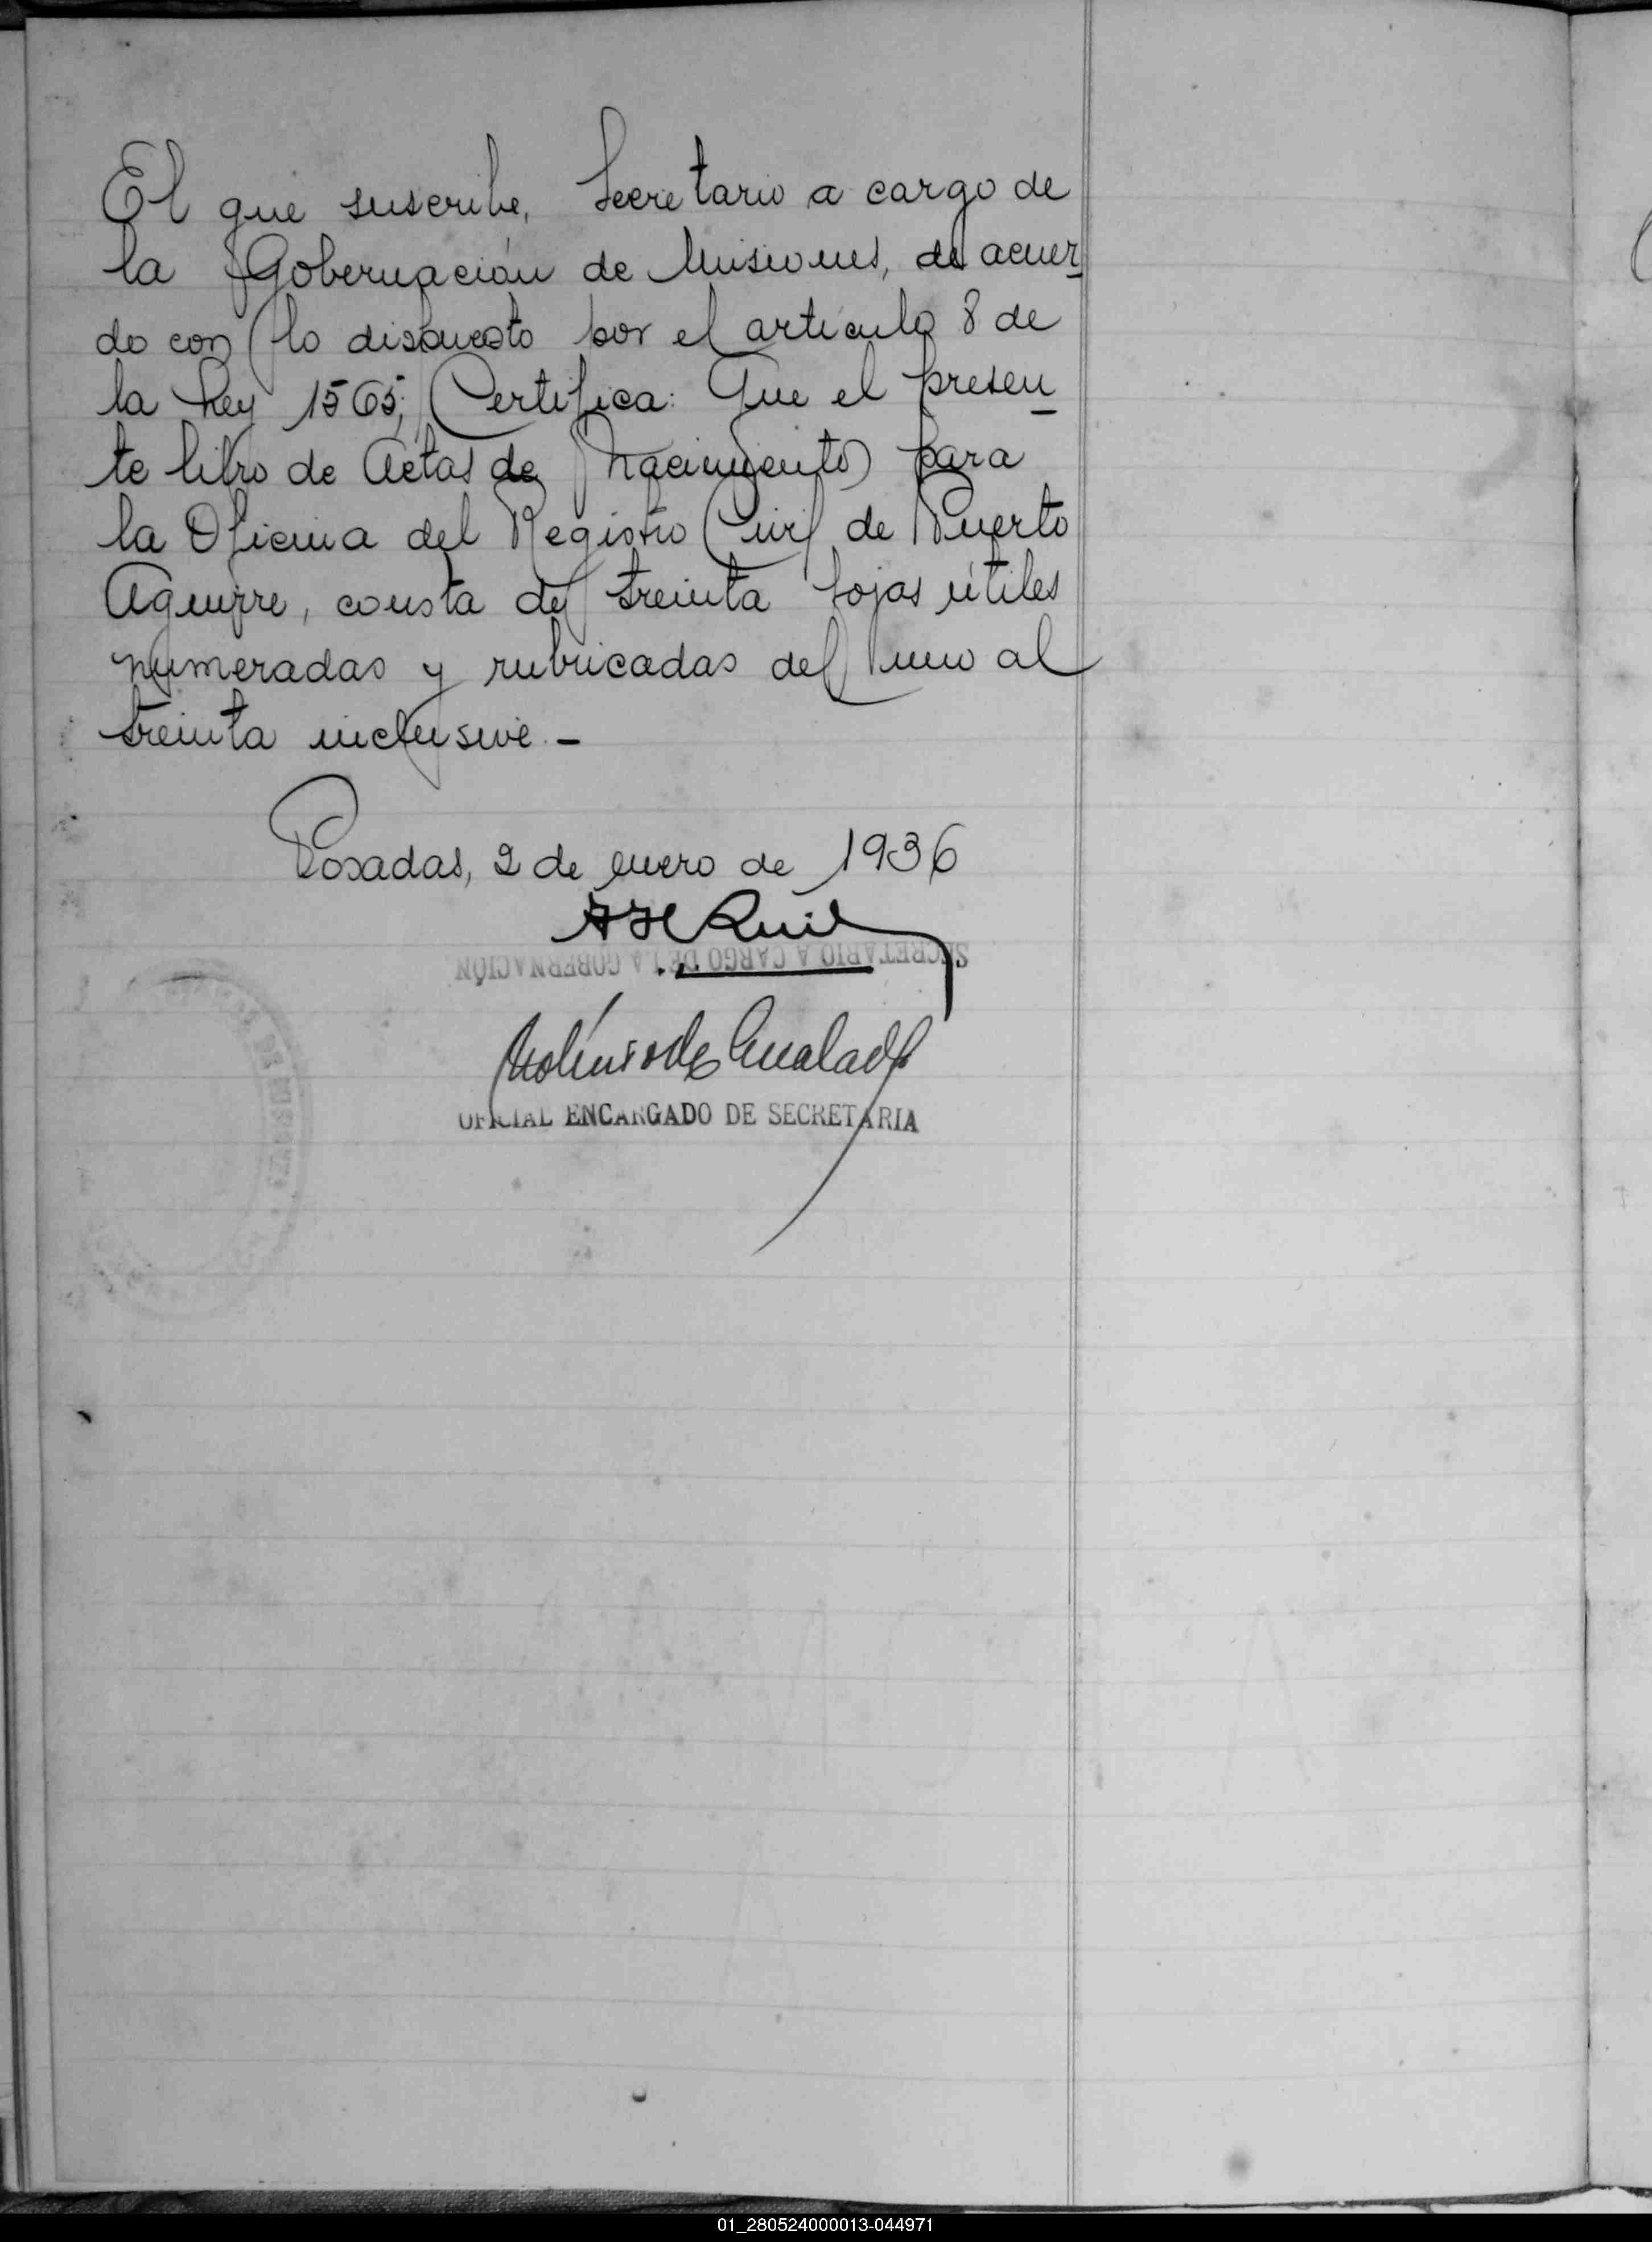 El que suscribe, Secretario a cargo de
la Gobernación de Misiones, de acuer-
do con lo dispuesto por el artículo 8 de
la Ley 1565; Certifica: Que el presen-
te libro de Actas de Nacimiento para
la Oficina del Registro Civil de Puerto
Aguirre, consta de treinta fojas útiles
numeradas y rubricadas del uno al
treinta inclusive.-
Posadas, 2 de enero de 1936
SECRETARIO A CARGO DE LA GOBERNACIÓN
OFICIAL ENCARGADO DE SECRETARIA
01_280524000013-044971